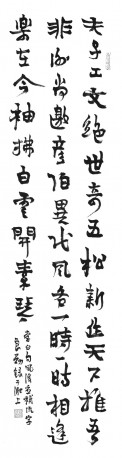 夫子工文絕世奇五松新作天下推吾
非謝尚邀彥伯異代風各一時一時相逢
樂在今袖拂白雲開素琴
李白句風後補流字